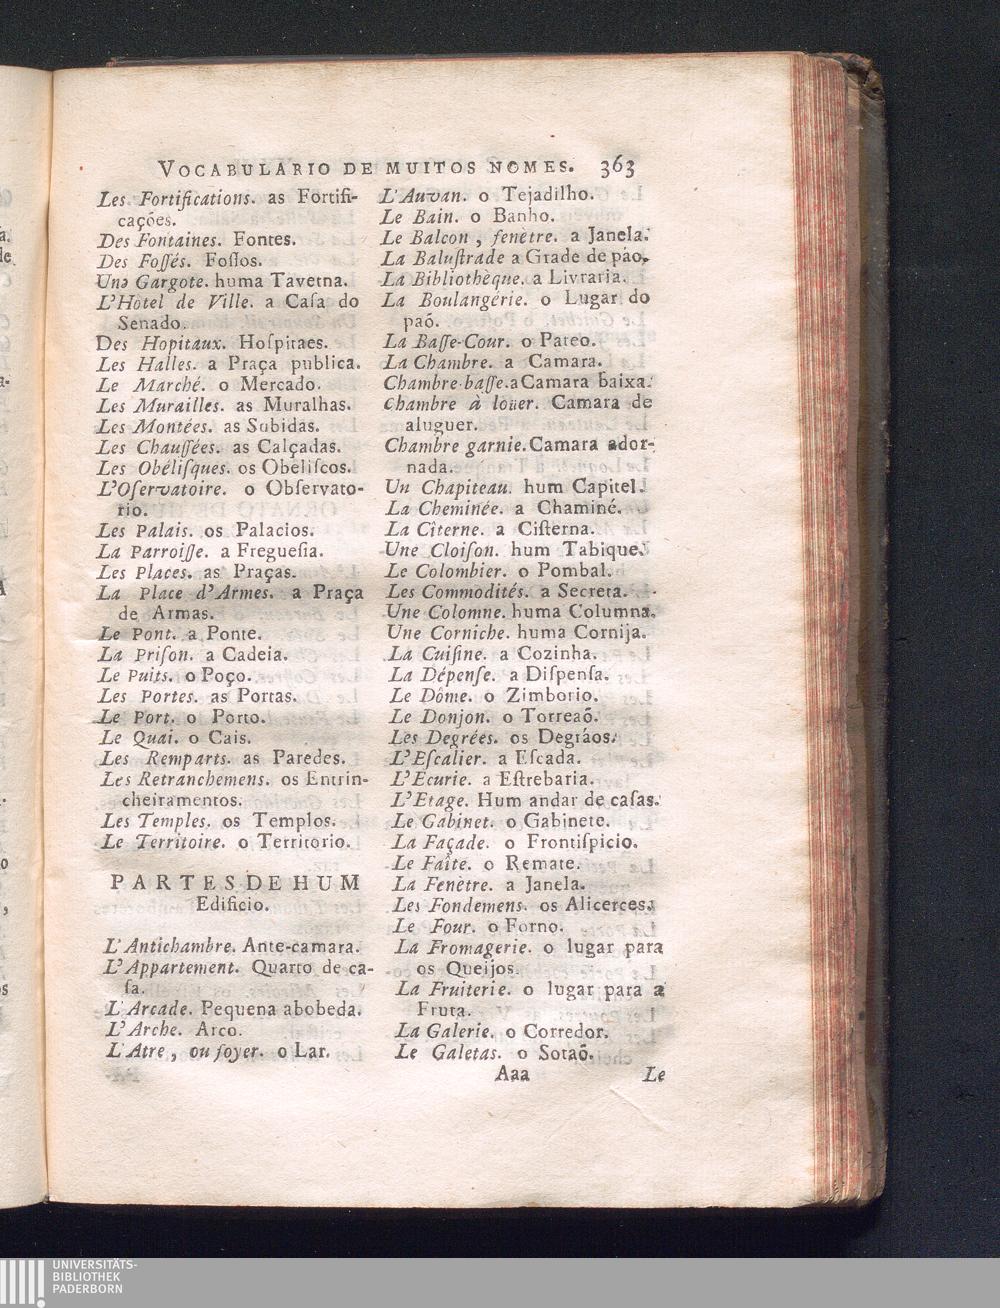 VOCABULARIO DE MUITOS NOMES. 363
Les Fortifications. as Fortifi-
cações.
Des Fontaines. Fontes.
Des Foſſés. Foſſos.
Une Gargote. huma Taverna.
L'Hôtel de Ville. a Caſa do
Senado.
Des Hopitaux. Hoſpitaes.
Les Halles. a Praça publica.
Le Marché. o Mercado.
Les Murailles. as Muralhas.
Les Montées. as Subidas.
Les Chauſſées. as Calçadas.
Les Obéliſques. os Obeliſcos.
L'Oſervatoire. o Obſervato-
rio.
Les Palais. os Palacios.
La Parroiſſe. a Fregueſia.
Les Places. as Praças.
La Place d'Armes. a Praça
de Armas.
Le Pont. a Ponte.
La Priſon. a Cadeia.
Le Puits. o Poço.
Les Portes. as Portas.
Le Port. o Porto.
Le Quai. o Cais.
Les Remparts. as Paredes.
Les Retranchemens. os Entrin-
cheiramentos.
Les Temples. os Templos.
Le Territoire. o Territorio.
PARTES DE HUM
Edificio.
L'Antichambre. Ante-camara.
L'Appartement. Quarto de ca-
ſa.
L'Arcade. Pequena abobeda.
L'Arche. Arco.
L'Atre, ou foyer. o Lar.
L'Auvan. o Tejadilho.
Le Bain. o Banho.
Le Balcon, fenètre. a Janela.
La Baluſtrade a Grade de pao.
La Bibliothèque. a Livraria.
La Boulangérie. o Lugar do
paó.
La Baſſe-Cour. o Pateo.
La Chambre. a Camara.
Chambre baſſe. a Camara baixa.
Chambre à loüer. Camara de
aluguer.
Chambre garnie. Camara ador-
nada.
Un Chapiteau. hum Capitel.
La Cheminée. a Chaminé.
La Cîterne. a Ciſterna.
Une Cloiſon. hum Tabique.
Le Colombier. o Pombal.
Les Commodités. a Secreta.
Une Colomne. huma Columna.
Une Corniche. huma Cornija.
La Cuiſine. a Cozinha.
La Dépenſe. a Diſpenſa.
Le Dôme. o Zimborio.
Le Donjon. o Torreaõ.
Les Degrées. os Degráos.
L'Eſcalier. a Eſcada.
L'Ecurie. a Eſtrebaria.
L'Etage. Hum andar de caſas.
Le Gabinet. o Gabinete.
La Façade. o Frontiſpicio.
Le Faîte. o Remate.
La Fenètre. a Janela.
Les Fondemens. os Alicerces.
Le Four. o Forno.
La Fromagerie. o lugar para
os Queijos.
La Fruiterie. o lugar para a
Fruta.
La Galerie. o Corredor.
Le Galetas. o Sotaõ.
Aaa Le
UNIVERSITÄTS-
BIBLIOTHEK
PADERBORN